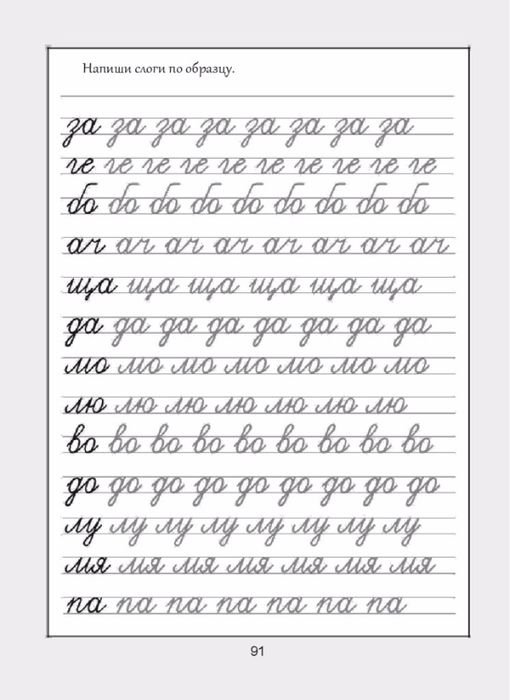 Напиши слоги по образцу.
за за за за за за за за
ге ге ге ге ге ге ге ге ге ге
бо бо бо бо бо бо бо бо бо
ач ач ач ач ач ач ач ач
ща ща ща ща ща ща
да да да да да да да да
мо мо мо мо мо мо мо
лю лю лю лю лю лю лю
во во во во во во во во во
до до до до до до до до до
лу лу лу лу лу лу лу лу
мя мя мя мя мя мя мя
па па па па па па па
91